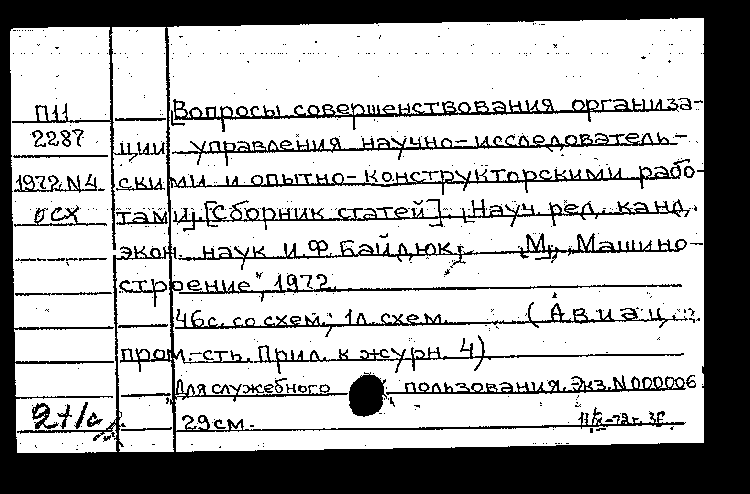 П11 Вопросы совершенствования организа-
2287 ции управления научно-исследователь-
1972 N 4 скими и опытно-конструкторскими рабо-
осх тами. [Сборник статей]. Науч. ред. канд.
экон. наук И.Ф. Байдюк. М., „Машино-
строение", 1972.
46с. со схем.; 1л. схем. (Авиац.
пром-сть. Прил. к журн. 4)
Для служебного пользования. Экз. N 000006
2+1с 29 см.